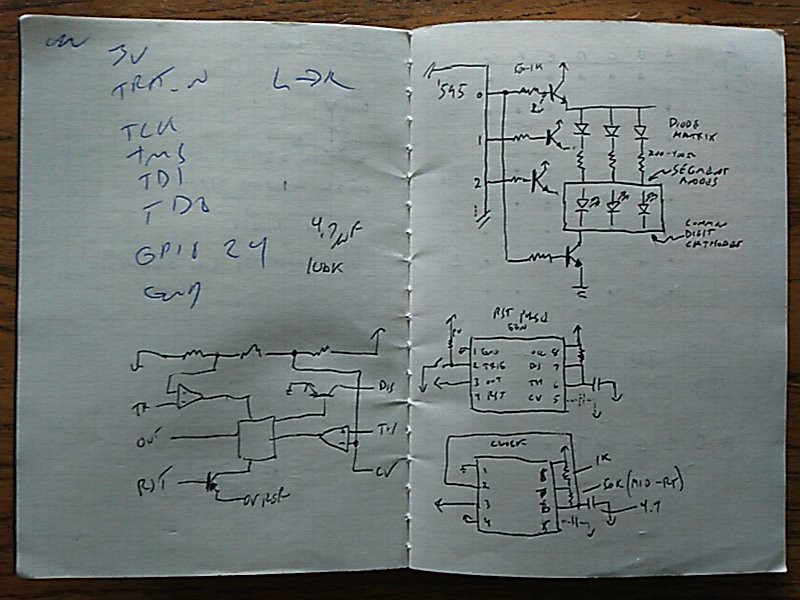 3V
TRST_N L→R
TCK
TMS
TDI
TDO
GPIO 24
GND
4.7µF
100K
TR
OUT
RST
DIS
TH
CV
'595
0
1
2
DIODE
MATRIX
SEGMENT
ANODES
COMMON
DIGIT
CATHODES
RST PULSE
1 GND VCC 8
2 TRIG DIS 7
3 OUT TH 6
4 RST CV 5
CLOCK
1 8
2 7
3 6
4 5
1K
50K (MID-RT)
4.7